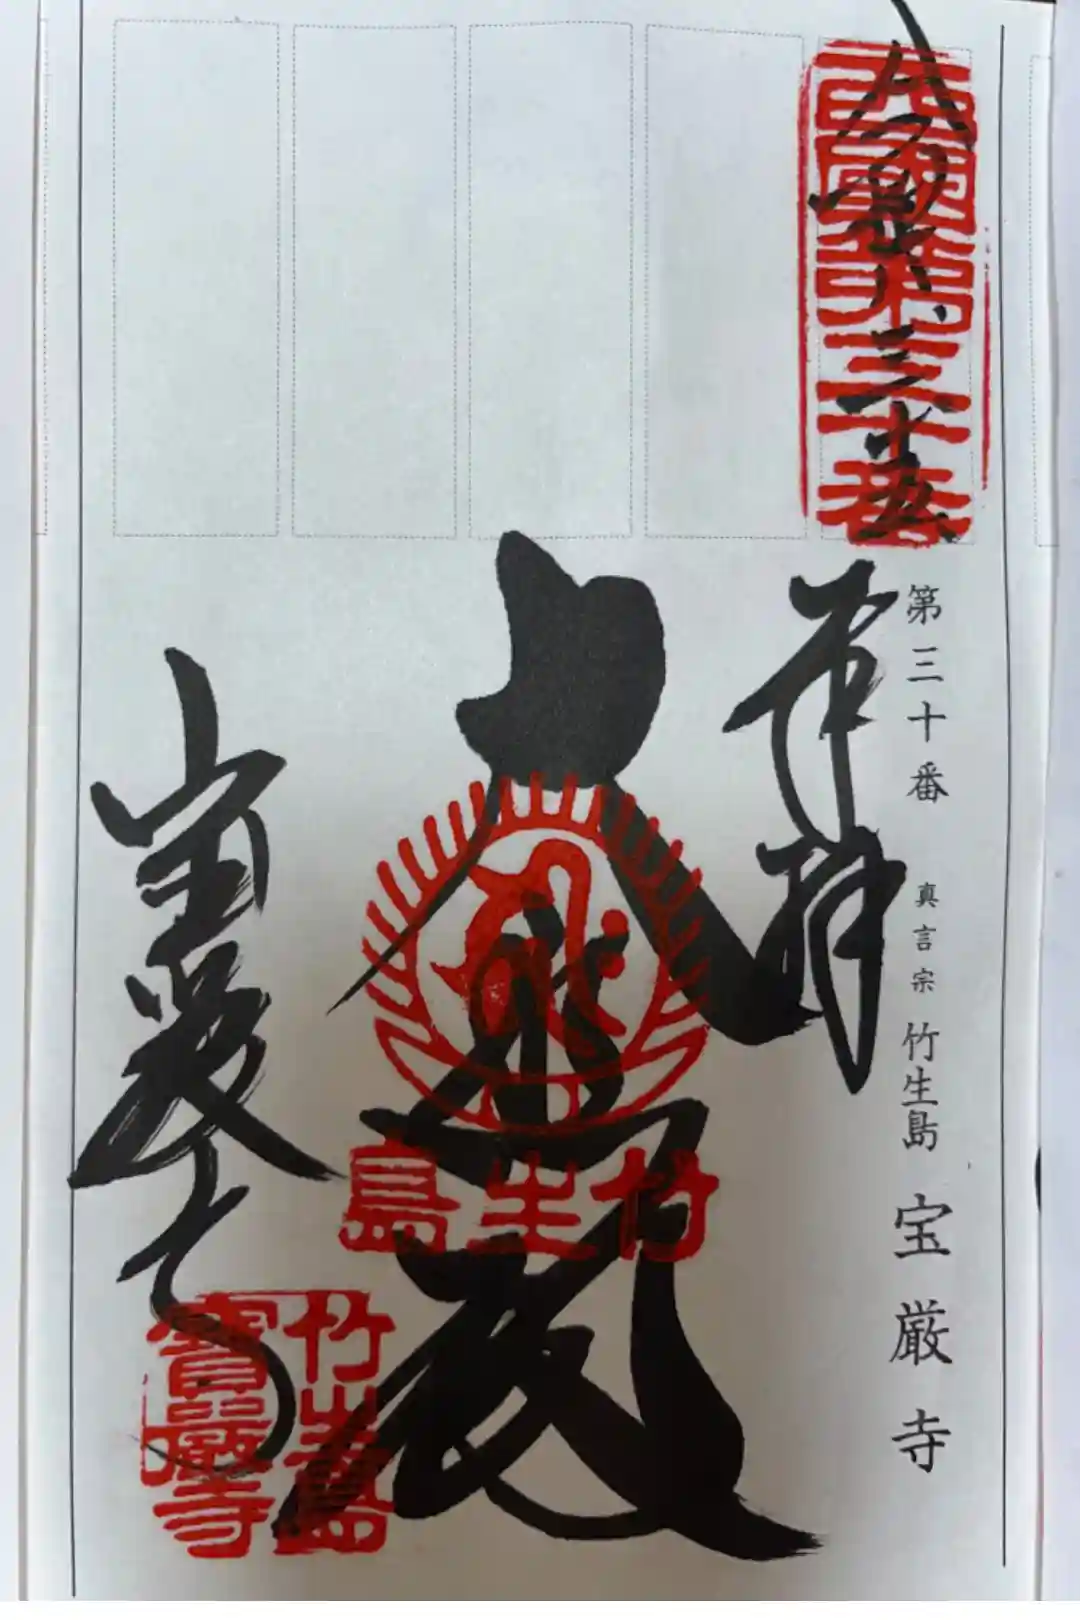 西國第三十番
奉拝
第三十番 真言宗 竹生島 宝厳寺
大悲殿
竹生島
宝厳寺
竹生島
寳嚴寺